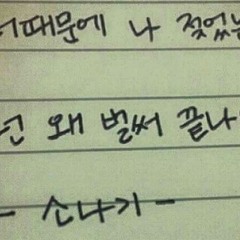 너때문에 나 젖었는
넌 왜 벌써 끝나
- 소나기 -